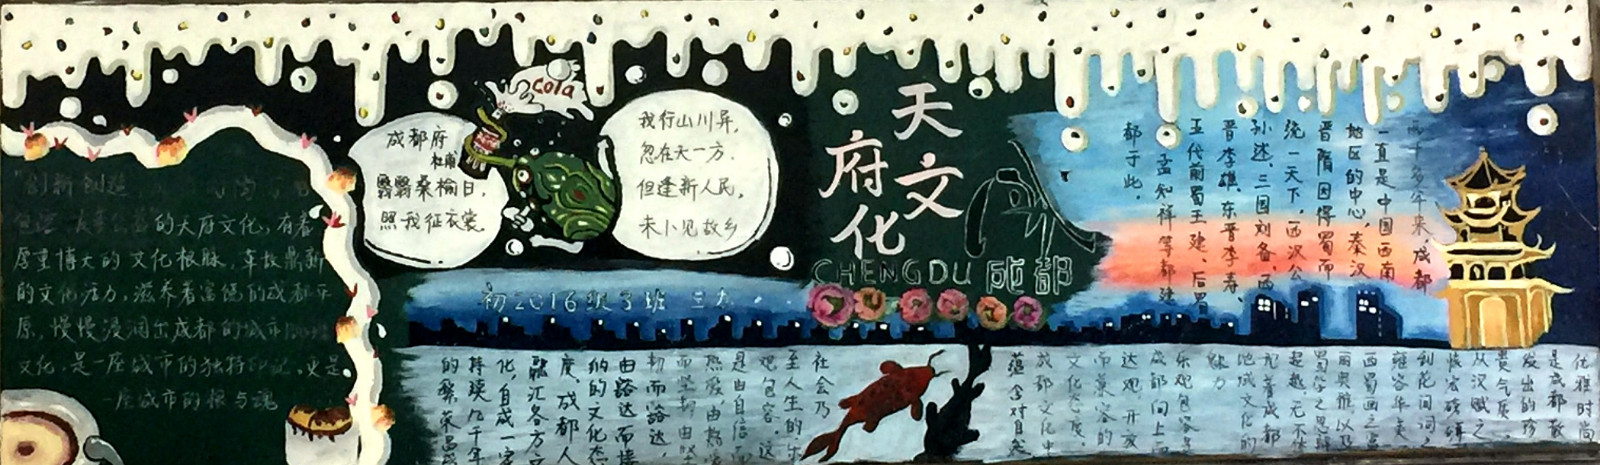 的天府文化，有着
厚重博大的文化根脉，革故鼎新
的文化活力，滋养着富饶的成都平
原，慢慢浸润出成都的城市
文化，是一座城市的独特印记，更是
一座城市的根与魂
成都府
杜甫
翳翳桑榆日，
照我征衣裳。
Cola
我行山川异，
忽在天一方。
但逢新人民，
未卜见故乡
天府文化
CHENGDU 成都
初2016级3班
一直是中国西南
地区的中心，秦汉
晋隋因得蜀而
统一天下，西汉公
孙述、三国刘备、西
晋李雄、东晋李寿、
五代前蜀王建、后蜀
孟知祥等都建
都于此。
优雅时尚
是成都散
发出的珍
贵气质，
从汉赋之
到花间词
雍容华美
西蜀画之富
丽奥雅，以及
蜀学之思辩
超越，无不体
现着成都
地域文化的
魅力
乐观包容是
成都向上而
达观、开放
而兼容的
文化态度，
成都文化中
蕴含对自然
社会乃
至人生的乐
观包容，这
是由自信而
热爱，由热爱
而坚韧，由坚
韧而豁达，
由豁达而接
纳的文化态
度，成都人
融汇各方文
化，自成一家
持续几千年
的繁荣昌盛